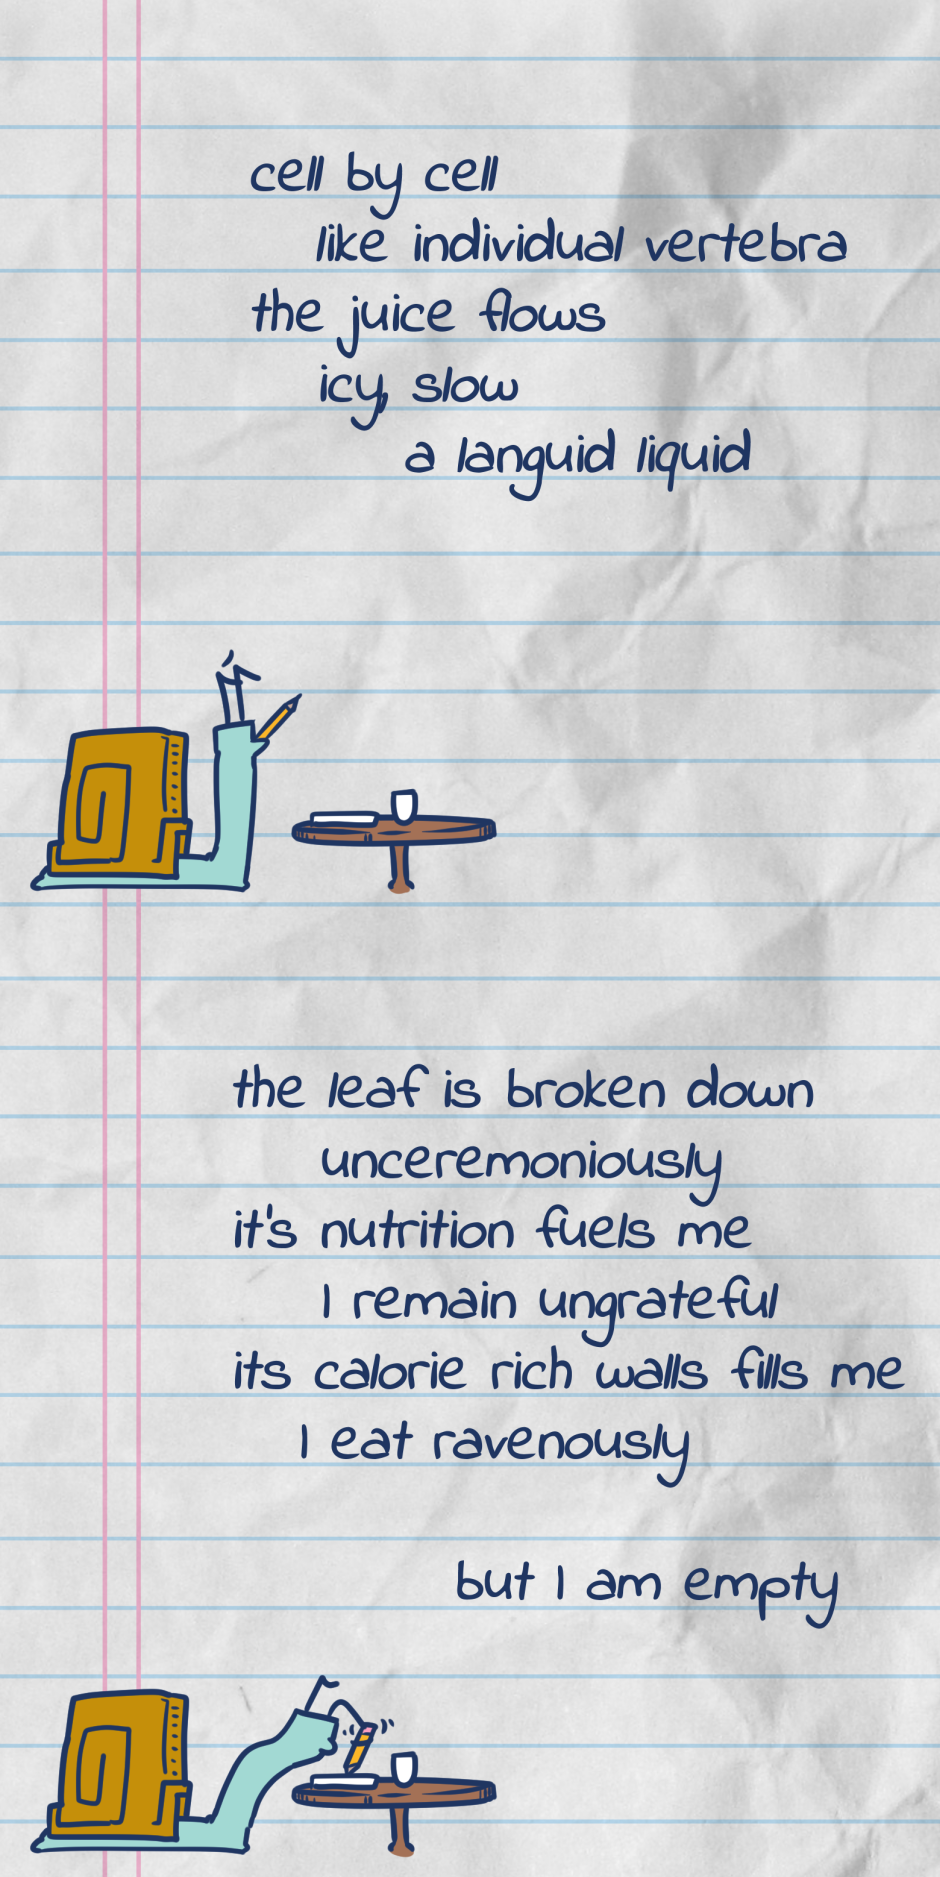 cell by cell
like individual vertebra
the juice flows
icy, slow
a languid liquid
the leaf is broken down
unceremoniously
it's nutrition fuels me
I remain ungrateful
its calorie rich walls fills me
I eat ravenously
but I am empty